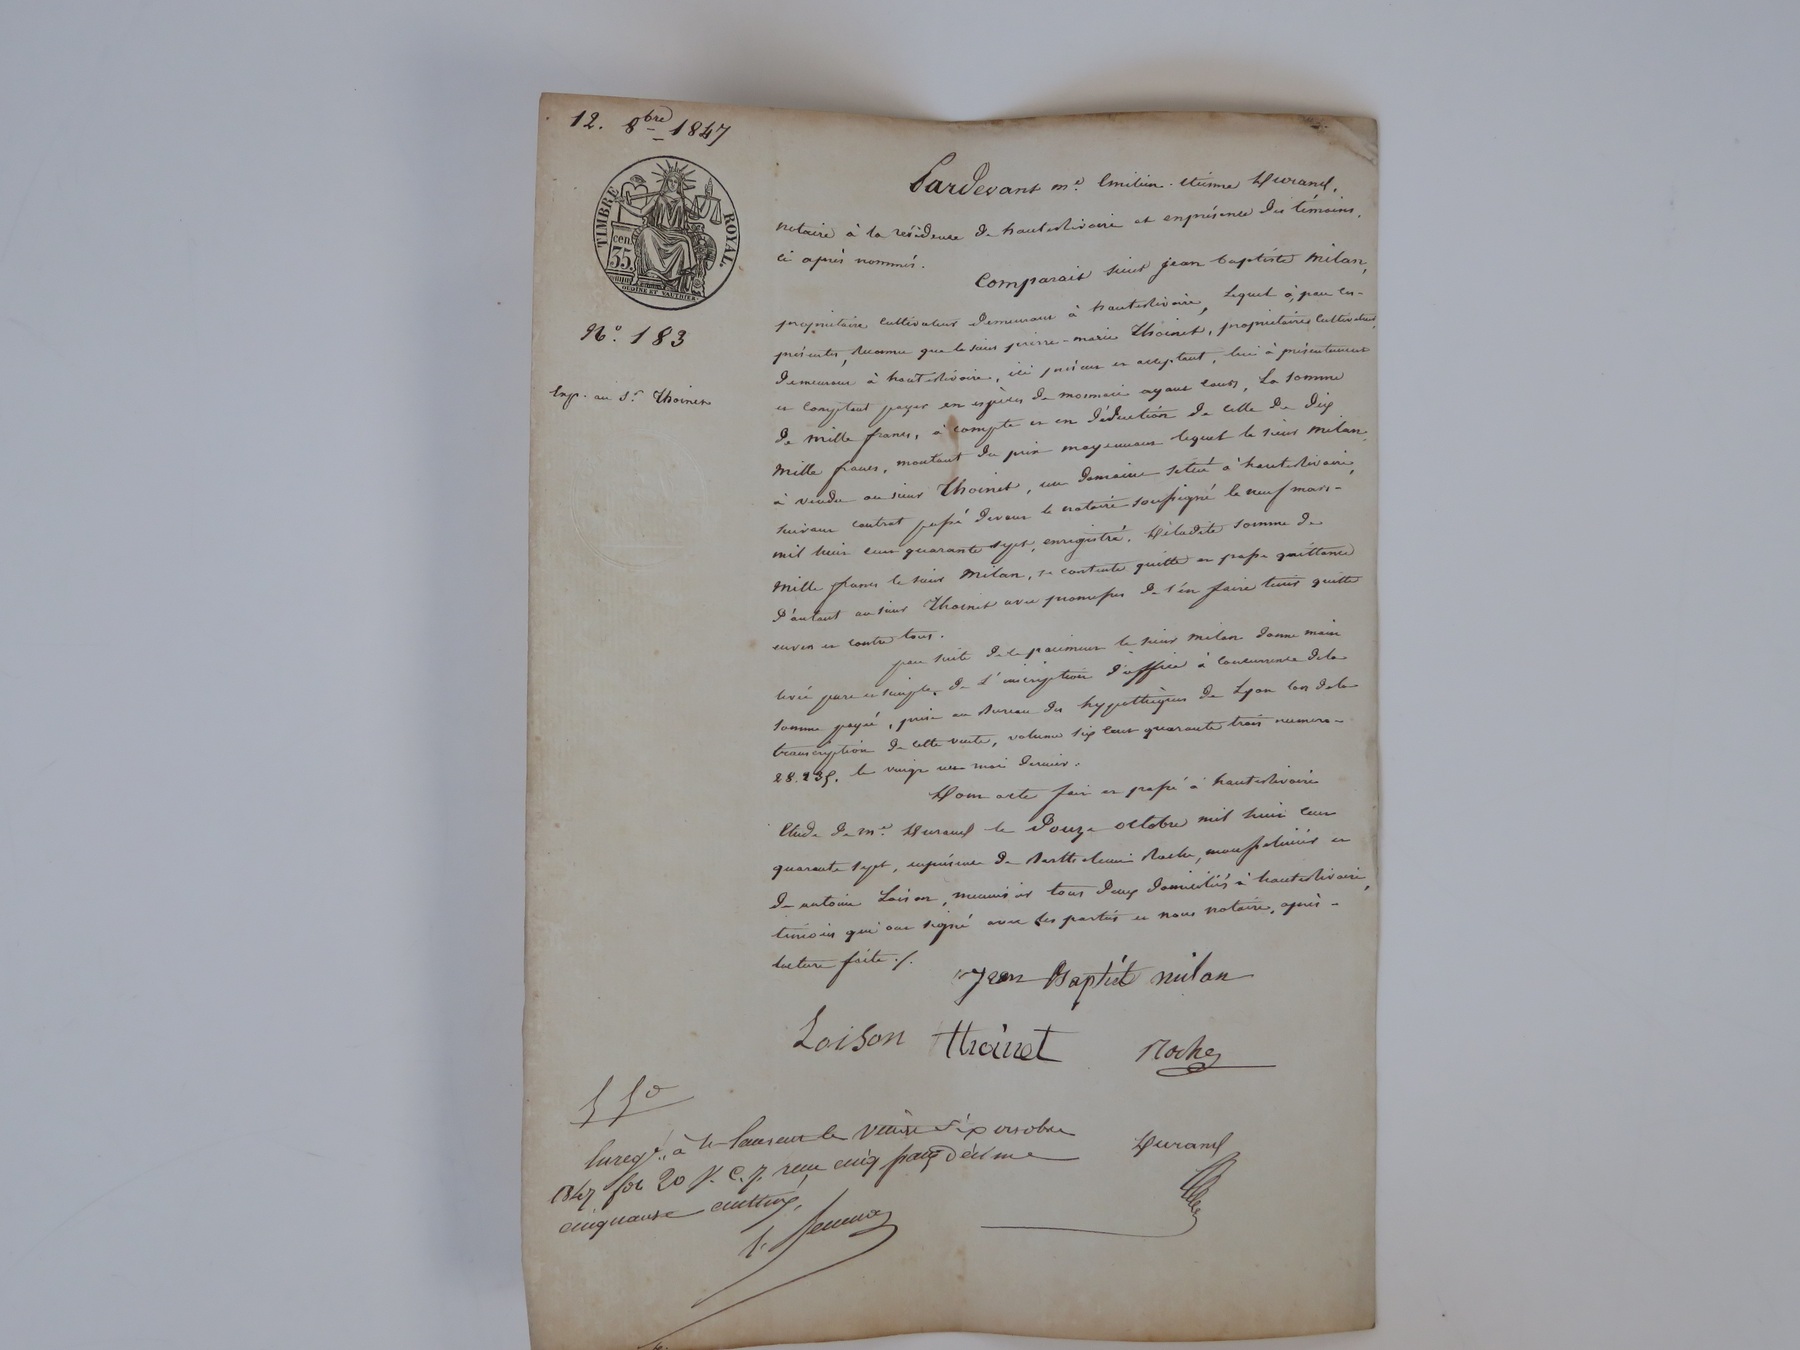 12. 8bre 1847
TIMBRE ROYAL.
cen.
35
OUDINE ET VAUTHIER.
N.º 183
Exp. au Sr. Thoinet
Pardevant me. Emilien-étienne Durand,
notaire à la résidence de hauterivoire et enprésence des témoins
ci après nommés.
Comparait sieur jean baptiste Milan,
propriétaire cultivateur demeurant à hauterivoire, Lequel à, par ces
présentes, reconnu que le sieur pierre-marie Thoinet, propriétaire cultivateur,
demeurant à hauterivoire, ici présent et acceptant, lui à présentement
et comptant payer en espèces de monnaie ayant cours, La somme
de mille francs, à compte et en déduction de celle de dix
mille francs, montant du prix moyennant lequel le sieur milan
à vendu au sieur Thoinet, un domaine situé à hauterivoire,
suivant contrat passé devant le notaire soussigné le neuf mars-
mil huit cent quarante sept, enregistré. Déladite somme de
mille francs le sieur Milan, se contente quitte et passe quittance
d'autant au sieur Thoinet avec promesse de s'en faire tenir quitte
envers et contre tous.
par suite de le paiement le sieur milan donne main
levée pure et simple, de l'inscription d'office à concurrence dela
somme payée, prise au bureau des hypothèques de Lyon lors dela
transcription de cette vente, volume six cent quarante trois numero-
28.235. le vingt un mai dernier.
Dont acte fait et passé à hauterivoire
Etude de me. Durand le Douze octobre mil huit cent
quarante sept, enprésence de Barthelemi Roche, et
de antoine Loison, menuisier tous deux domiciliés à hauterivoire,
témoins qui ont signé avec les parties et nous notaire, après-
lecture faite ./.
Jean Baptist milan
Loison Thoinet Roche
Enregé. à St Laurent le vingt six octobre
Durand
1847 fol 20 r. C. 7. reçu cinq francs Décime
cinquante centimes,